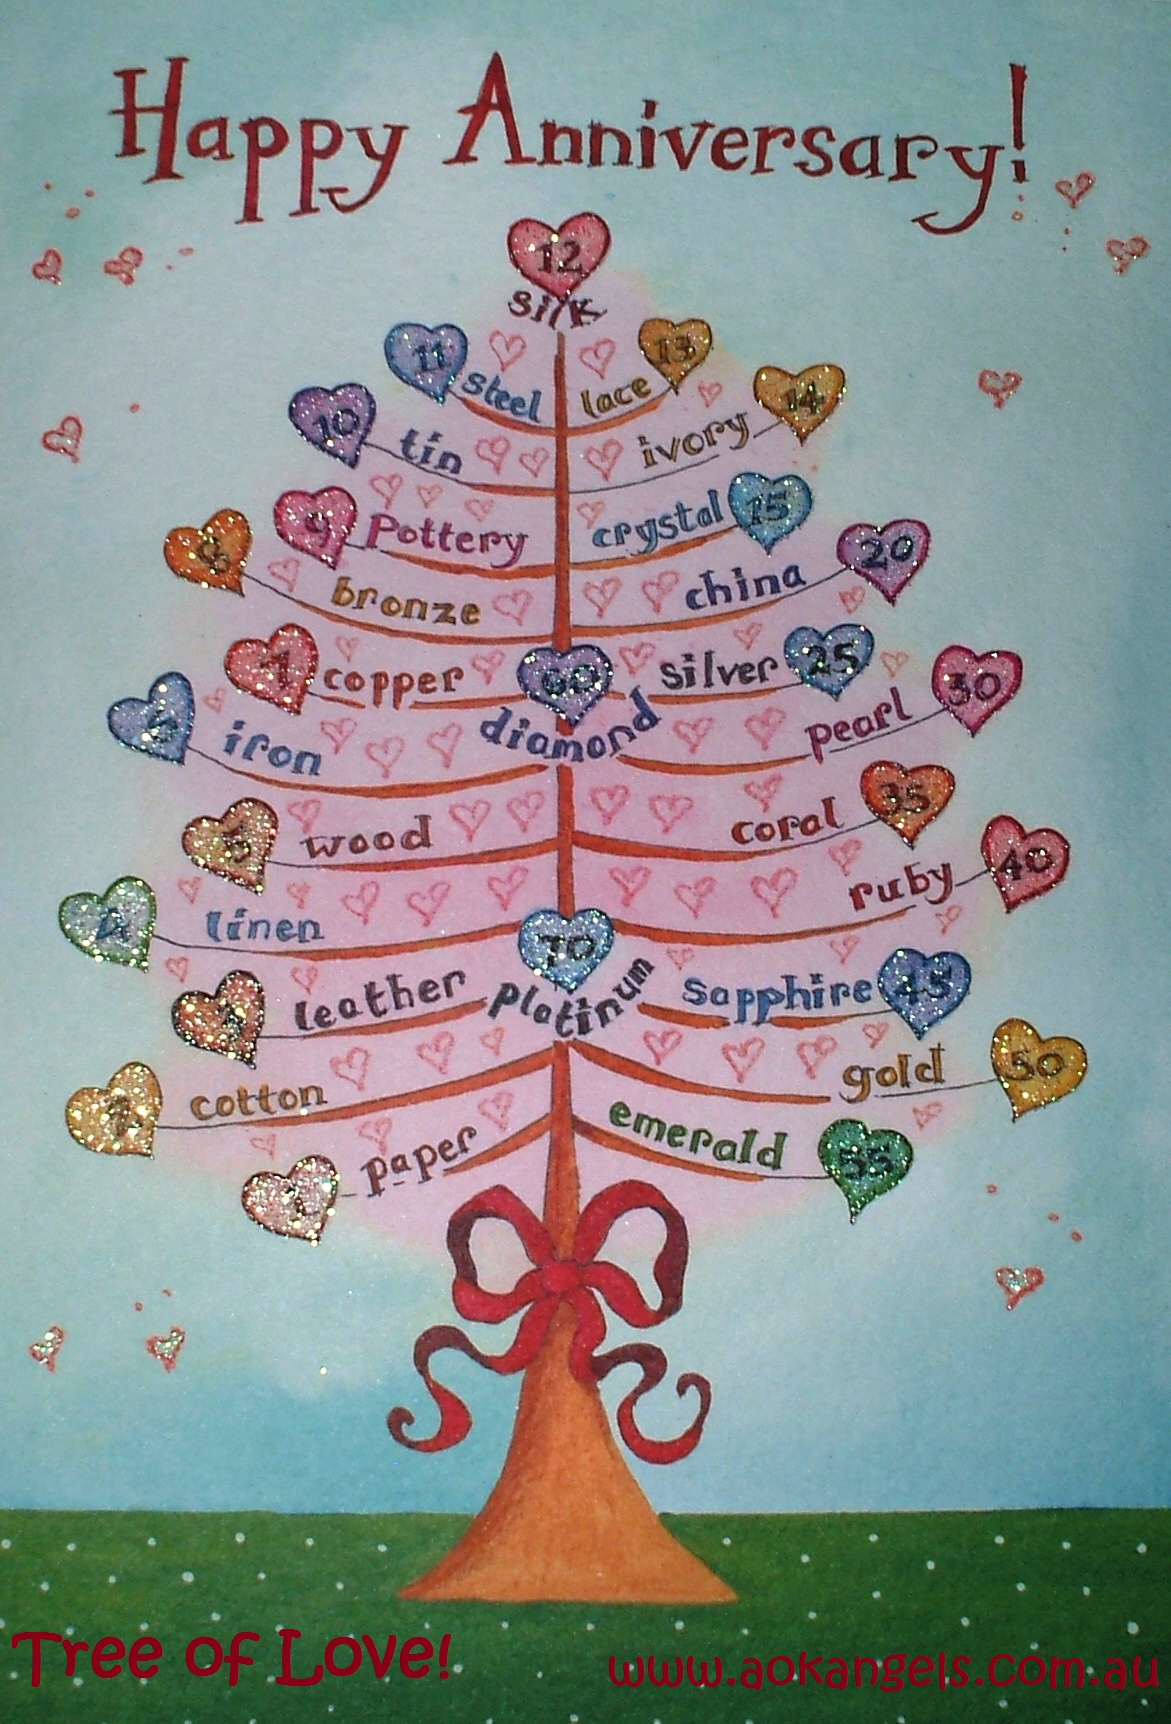 Happy Anniversary!
12
silk
11 steel
lace 13
10 tin
ivory 14
9 Pottery
crystal 15
8 bronze
china 20
7 copper
60
diamond
silver 25
6 iron
pearl 30
5 wood
coral 35
4 linen
ruby 40
3 leather
70
platinum
sapphire 45
2 cotton
gold 50
1 paper
emerald 55
Tree of Love!
www.aokangels.com.au